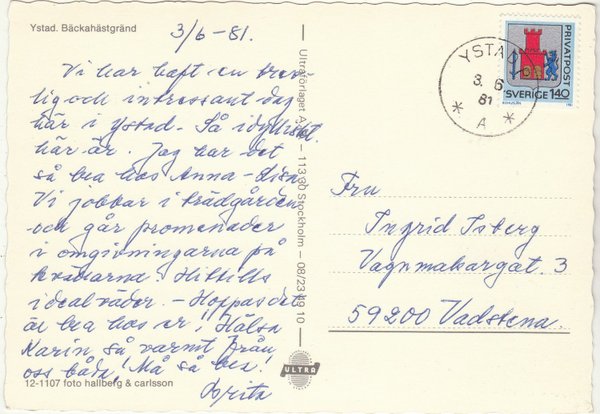 Ystad. Bäckahästgränd
3/6-81.
Vi har haft en trev-
lig och intressant dag
här i Ystad. Så idylliskt
här är. Jag har det
så bra hos Anna-Lisa.
Vi jobbar i trädgården
och går promenader
i omgivningarna på
kvällarna. Hittills
idealväder. - Hoppas det
är bra hos er! Hälsa
Karin så varmt från
oss båda! Må så bra!
Brita
12-1107 foto hallberg & carlsson
Ultraförlaget A.B. – 113 30 Stockholm – 08/23 10
ULTRA
PRIVATPOST
SVERIGE 140
YSTAD
3. 6
81
* A *
Fru
Ingrid Isberg
Vagnmakargat. 3
59200 Vadstena.